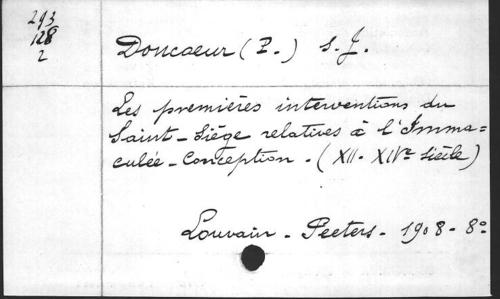 293
128
2
Doncoeur (P.) S.J.
Les premières interventions du
Saint-Siège relatives à l'Imma=
culée-Conception. (XII-XIVe siècle)
Louvain - Peeters - 1908 - 8°